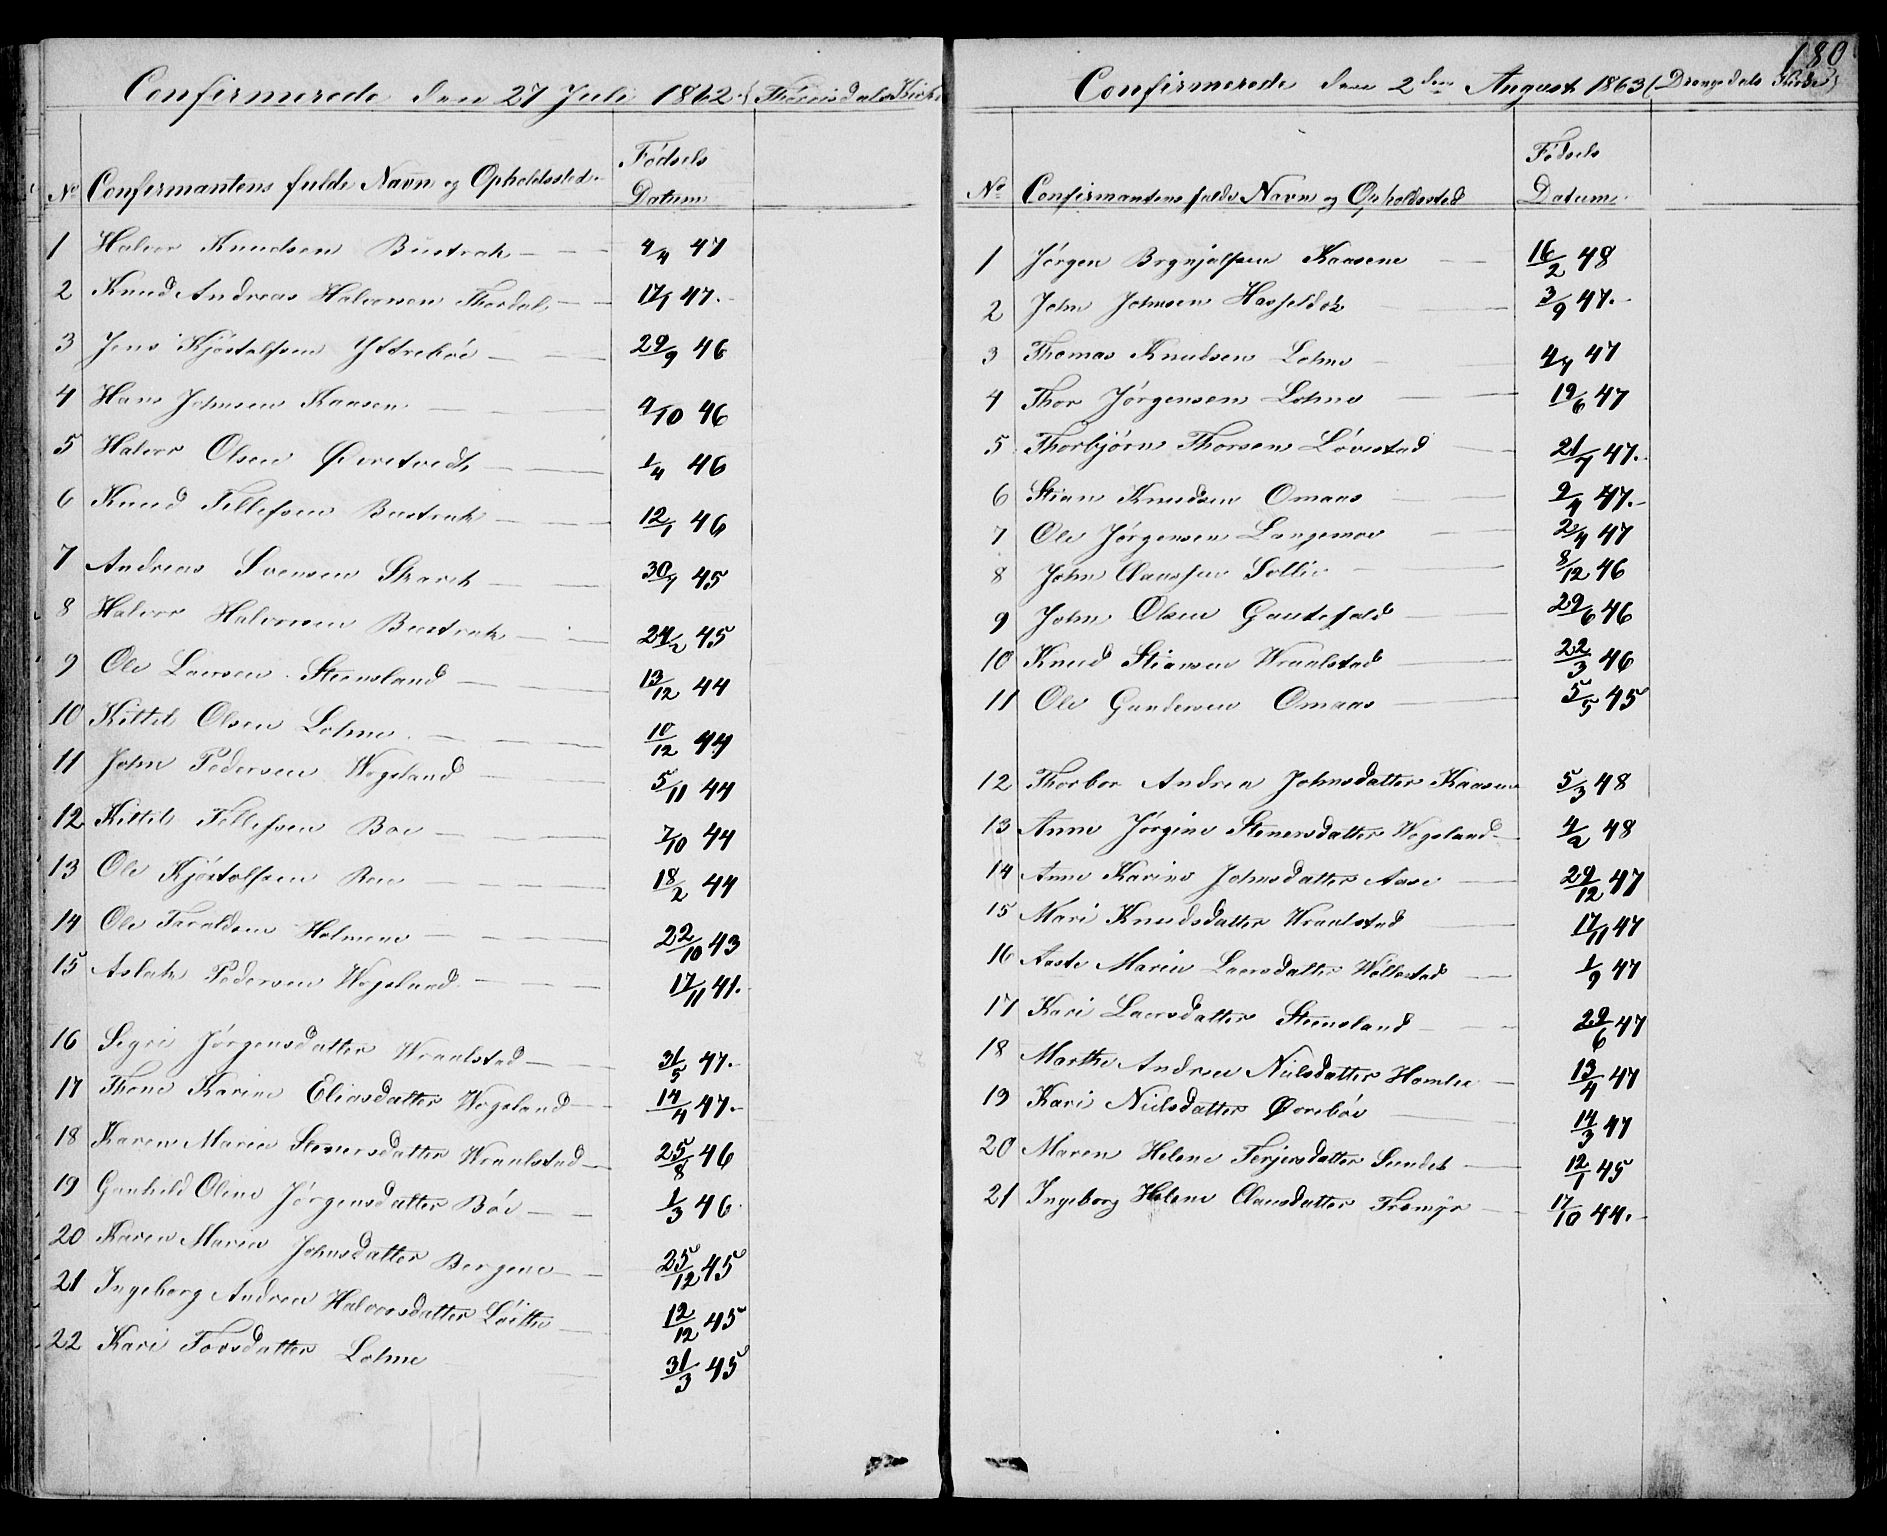 Confirmerede den 27 Juli 1862 (Tørrisdals Kirke
No Confirmantens fulde Navn og Opholdssted. Fødsels Datum
1 Halvor Knudsen Bustrak 4/4 47
2 Knud Andreas Halvorsen Thordal 17/1 47.
3 Jens Kjøstolfsen Yttrebøe 29/9 46
4 Hans Johnsen Kaasen 9/10 46
5 Halvor Olsen Øvretvedt 1/4 46
6 Knud Tellefsen Bustrak 12/1 46
7 Andreas Svensen Skareth 30/7 45
8 Halvor Halvorsen Bustrak 24/2 45
9 Ole Larsen Steensland 13/12 44
10 Kittil Olsen Lohne 10/12 44
11 John Pedersen Wogsland 5/11 44
12 Kittil Tellefsen Boe 7/10 44
13 Ole Kjøstolfsen Boe 18/2 44
14 Ole Taraldsen Holmene 22/10 43
15 Aslak Pedersen Wogsland 17/11 41.
16 Segri Jørgensdatter Wraalstad 31/5 47.
17 Thone Karine Eliasdatter Wogsland 14/4 47.
18 Karen Maria Stenersdatter Wraalstad 25/8 46
19 Gunhild Oline Jørgensdatter Bøe 1/3 46
20 Karen Maria Johnsdatter Bergene 25/12 45
21 Ingeborg Andrea Halvorsdatter Løite 12/12 45
22 Kari Torsdatter Lohne 31/3 45
180
Confirmerede den 2den August 1863 (Drangedals Kirke)
No Confirmantens fulde Navn og Opholdssted Fødsels Datum
1 Jørgen Brynjulfsen Kaasene 16/2 48
2 John Johnsen 3/9 47.
3 Thomas Knudsen Lohne 4/7 47
4 Thor Jørgensen Lohne 19/6 47
5 Thorbjørn Thorsen Løvestad 21/7 47.
6 Stian Knudsen Omaas 9/4 47.
7 Ole Jørgensen Langemoe 2/4 47
8 John Claussen Sollie 8/12 46
9 John Olsen Gautefald 29/6 46
10 Knud Stiansen Wraalstad 22/3 46
11 Ole Gundersen Omaas 5/5 45
12 Thorbor Andrea Johnsdatter Kaasene 5/3 48
13 Anne Jørgine Stenersdatter Wogsland 4/2 48
14 Anne Karine Johnsdatter Aase 29/12 47
15 Mari Knudsdatter Wraalstad 17/11 47
16 Aaste Maria Larsdatter Wøllestad 1/9 47
17 Kari Larsdatter Steensland 29/6 47
18 Marthe Andrea Nielsdatter Hemlie 13/4 47
19 Kari Nielsdatter Ørrebøe 14/3 47
20 Maren Helene Terjersdatter Sundet 12/1 45
21 Ingeborg Helene Clausdatter Tremyr 17/10 44.